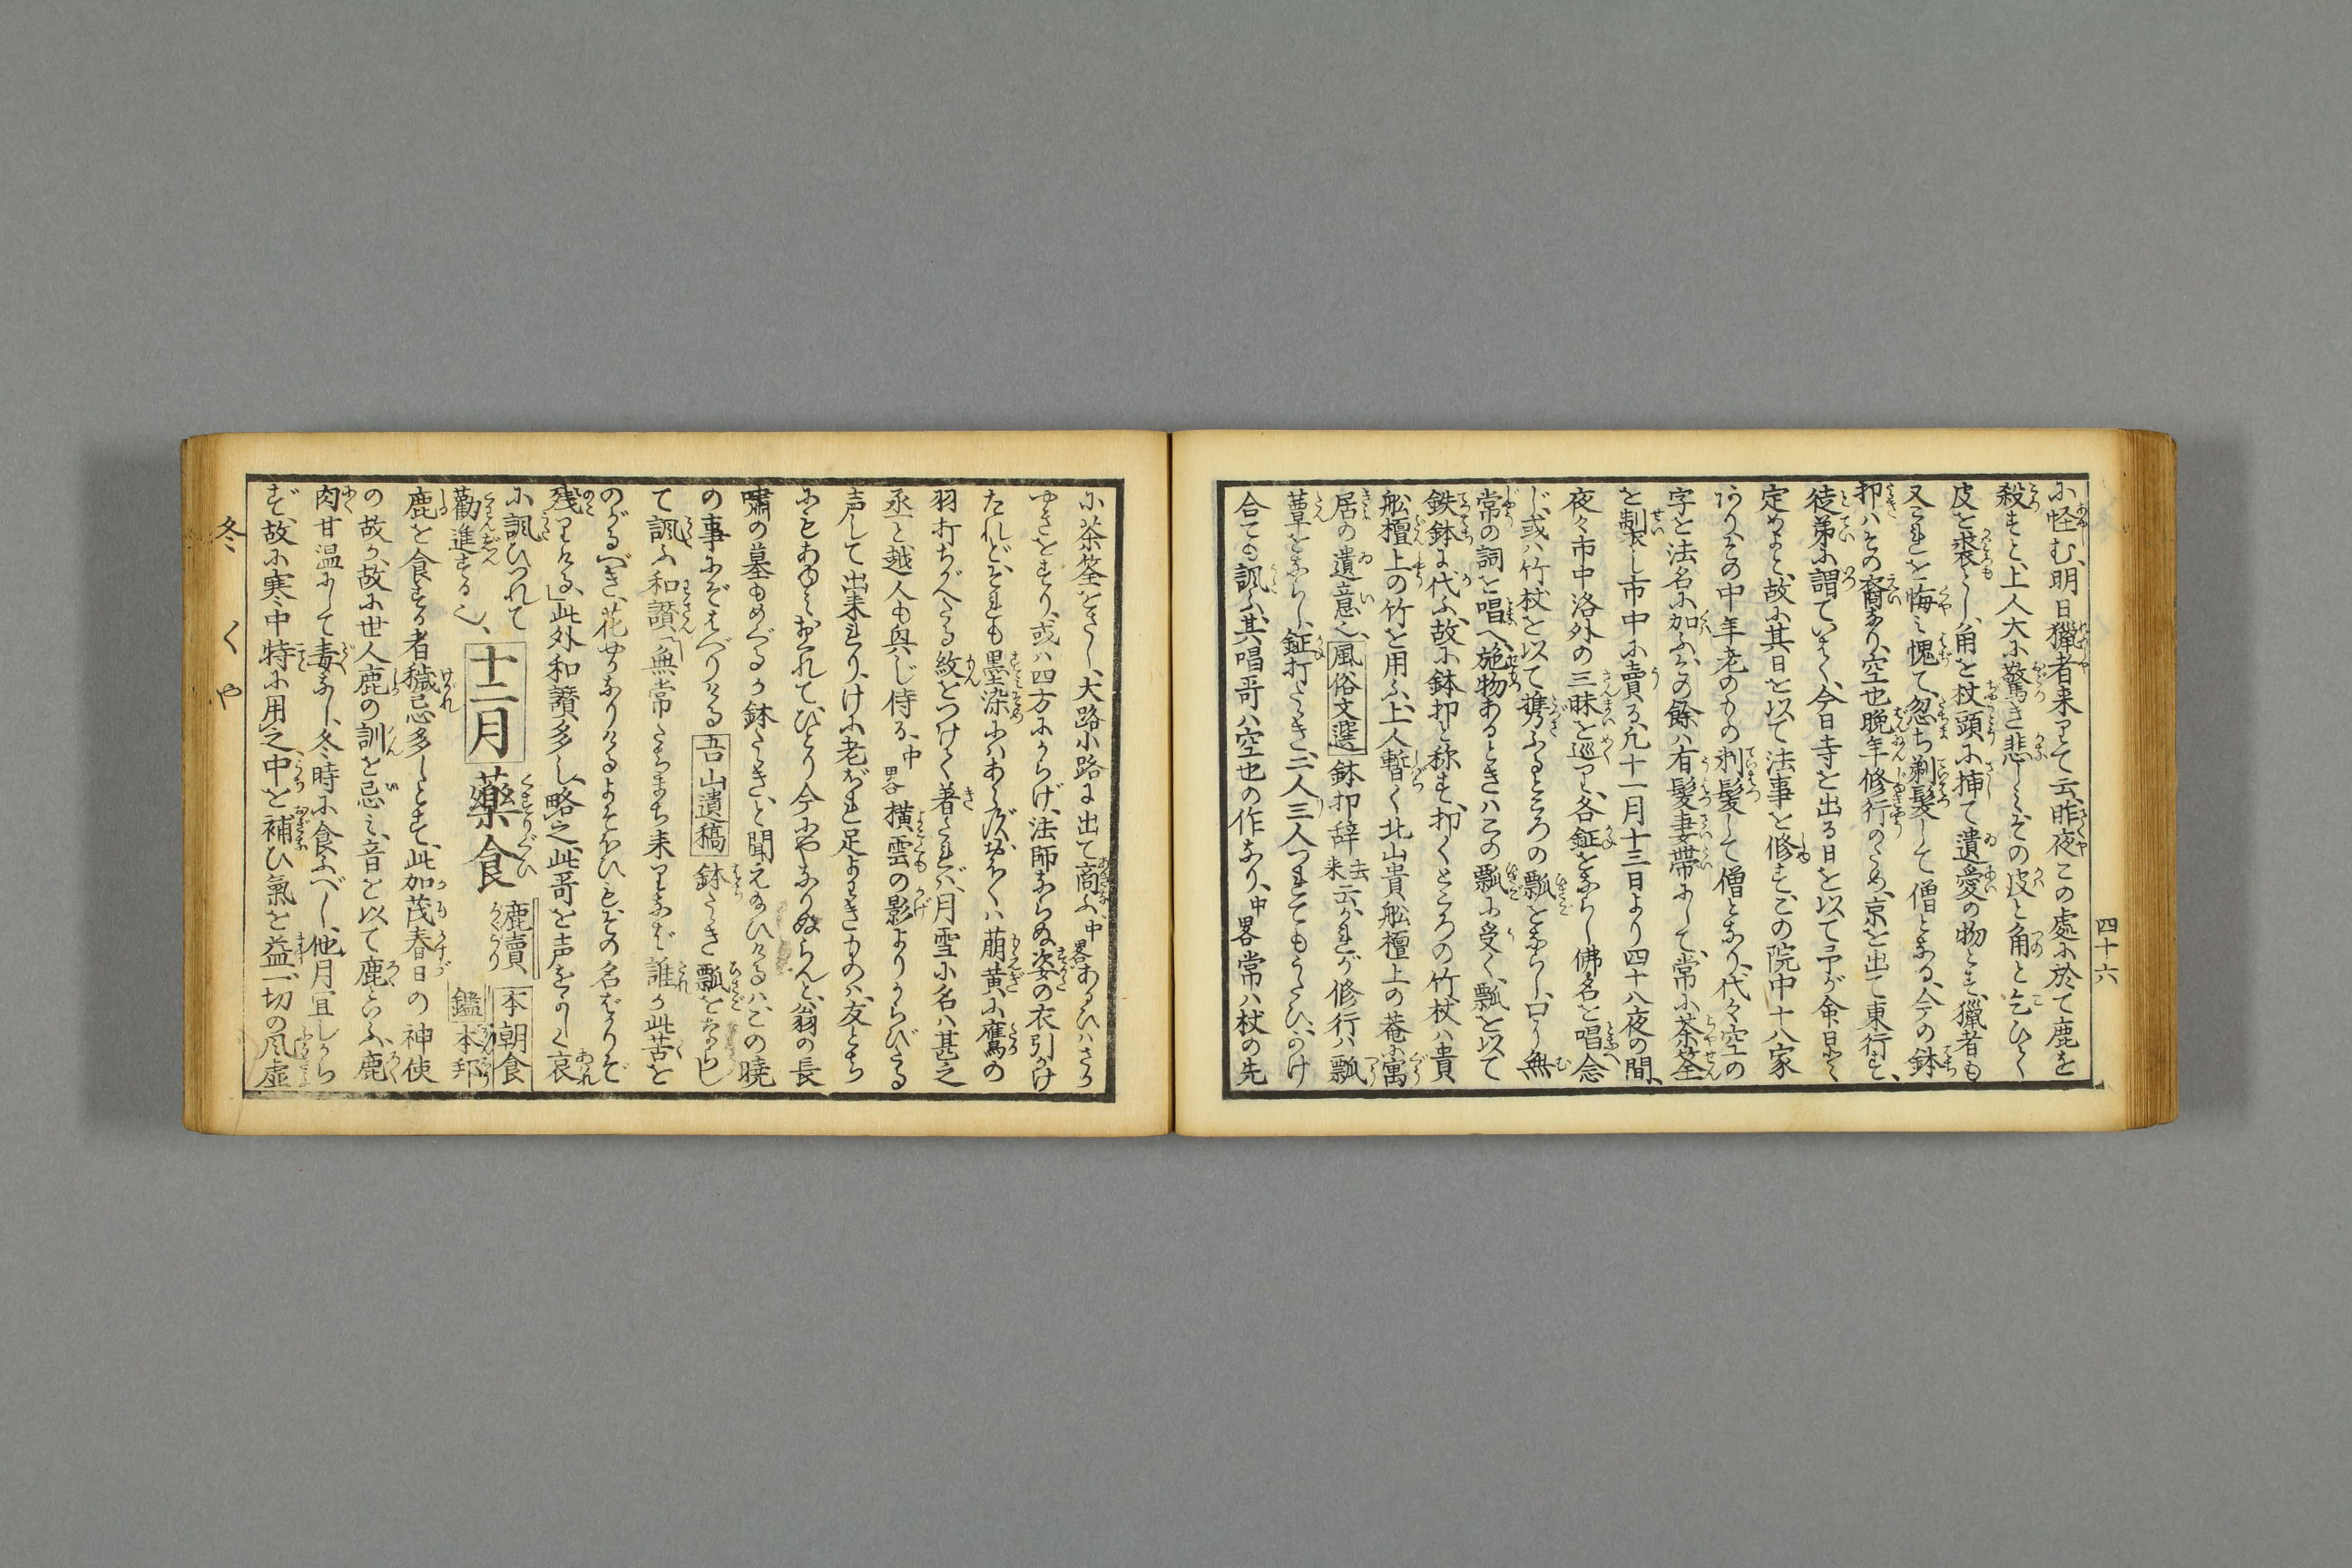 四十六
に怪む、明日獵者来りて云、昨夜この處に於て鹿を
殺すと、上人大に驚き悲しみ、その皮と角とを乞ひうく
皮を裘とし、角を杖頭に挿て遺愛の物とす、獵者も
又これを悔ミ愧て、忽ち剃髪して僧となる、今の鉢
叩ハその裔なり、空也晩年修行のため、京を出て東行す、
徒弟に謂ていはく、今日寺を出る日を以て予が命日と
定めよと、故に其日を以て法事を修す、この院中十八家
ありその中年老のもの剃髪して僧となり、代々空の
字を法名に加ふ、その餘ハ有髪妻帯にして、常に茶筌
を製し市中に賣る、凡十一月十三日より四十八夜の間、
夜々市中洛外の三昧を巡り、各鉦をならし佛名を唱へ念
じ、或ハ竹杖を以て携ふるところの瓢をならし、口に無
常の詞を唱へ、施物あるときハこの瓢に受く、瓢を以て
鉄鉢に代ふ、故に鉢叩と称す、叩くところの竹杖ハ貴
舩檀上の竹を用ふ、上人暫く北山貴舩檀上の菴に寓
居の遺意也、風俗文選鉢叩辞去来云、かれが修行ハ瓢
簟をならし、鉦打たゝき、二人三人つれてもうたひ、かけ
合ても諷ふ、其唱哥ハ空也の作なり、中畧常ハ杖の先
に茶筌をさし、大路小路に出て商ふ、中畧あるひハさか
やきをすり、或ハ四方にからげ、法師ならぬ姿の衣引かけ
たれど、それも墨染にハあらず、おほくハ萠黄に鷹の
羽打ちがへたる紋をつけて着たれバ、月雪に名ハ甚之
丞と越人も興じ侍る、中畧横雲の影よりからびたる
声して出来れり、けに老ぼれ足よわきものハ、友とち
にもあゆミおくれて、ひとり今にやなりぬらんと、翁の長
嘯の墓もめぐるか鉢たゝき、と聞え給ひけるハ、この曉
の事にぞはべりける吾山遺稿鉢たゝき瓢をならし
て諷ふ和讃「無常たちまち来りなバ誰か此苦を
のがるべき、花やかなりけるよそほひも、その名ばかりぞ
残りける」此外和讃多し、略之、此哥を声をかしく哀
に諷ひつれて
勸進する也、十二月藥食鹿賣本朝食鑑本邦
鹿を食する者穢忌多しとす、此加茂春日の神使
の故か、故に世人鹿の訓を忌ミ、音を以て鹿といふ、鹿
肉甘温にして毒なし、冬時に食ふべし、他月宜しから
ず、故に寒中特に用之、中を補ひ氣を益、一切の風虚
冬くや